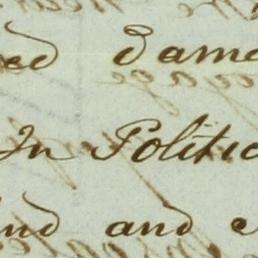 ed dama
In Politic
ind and